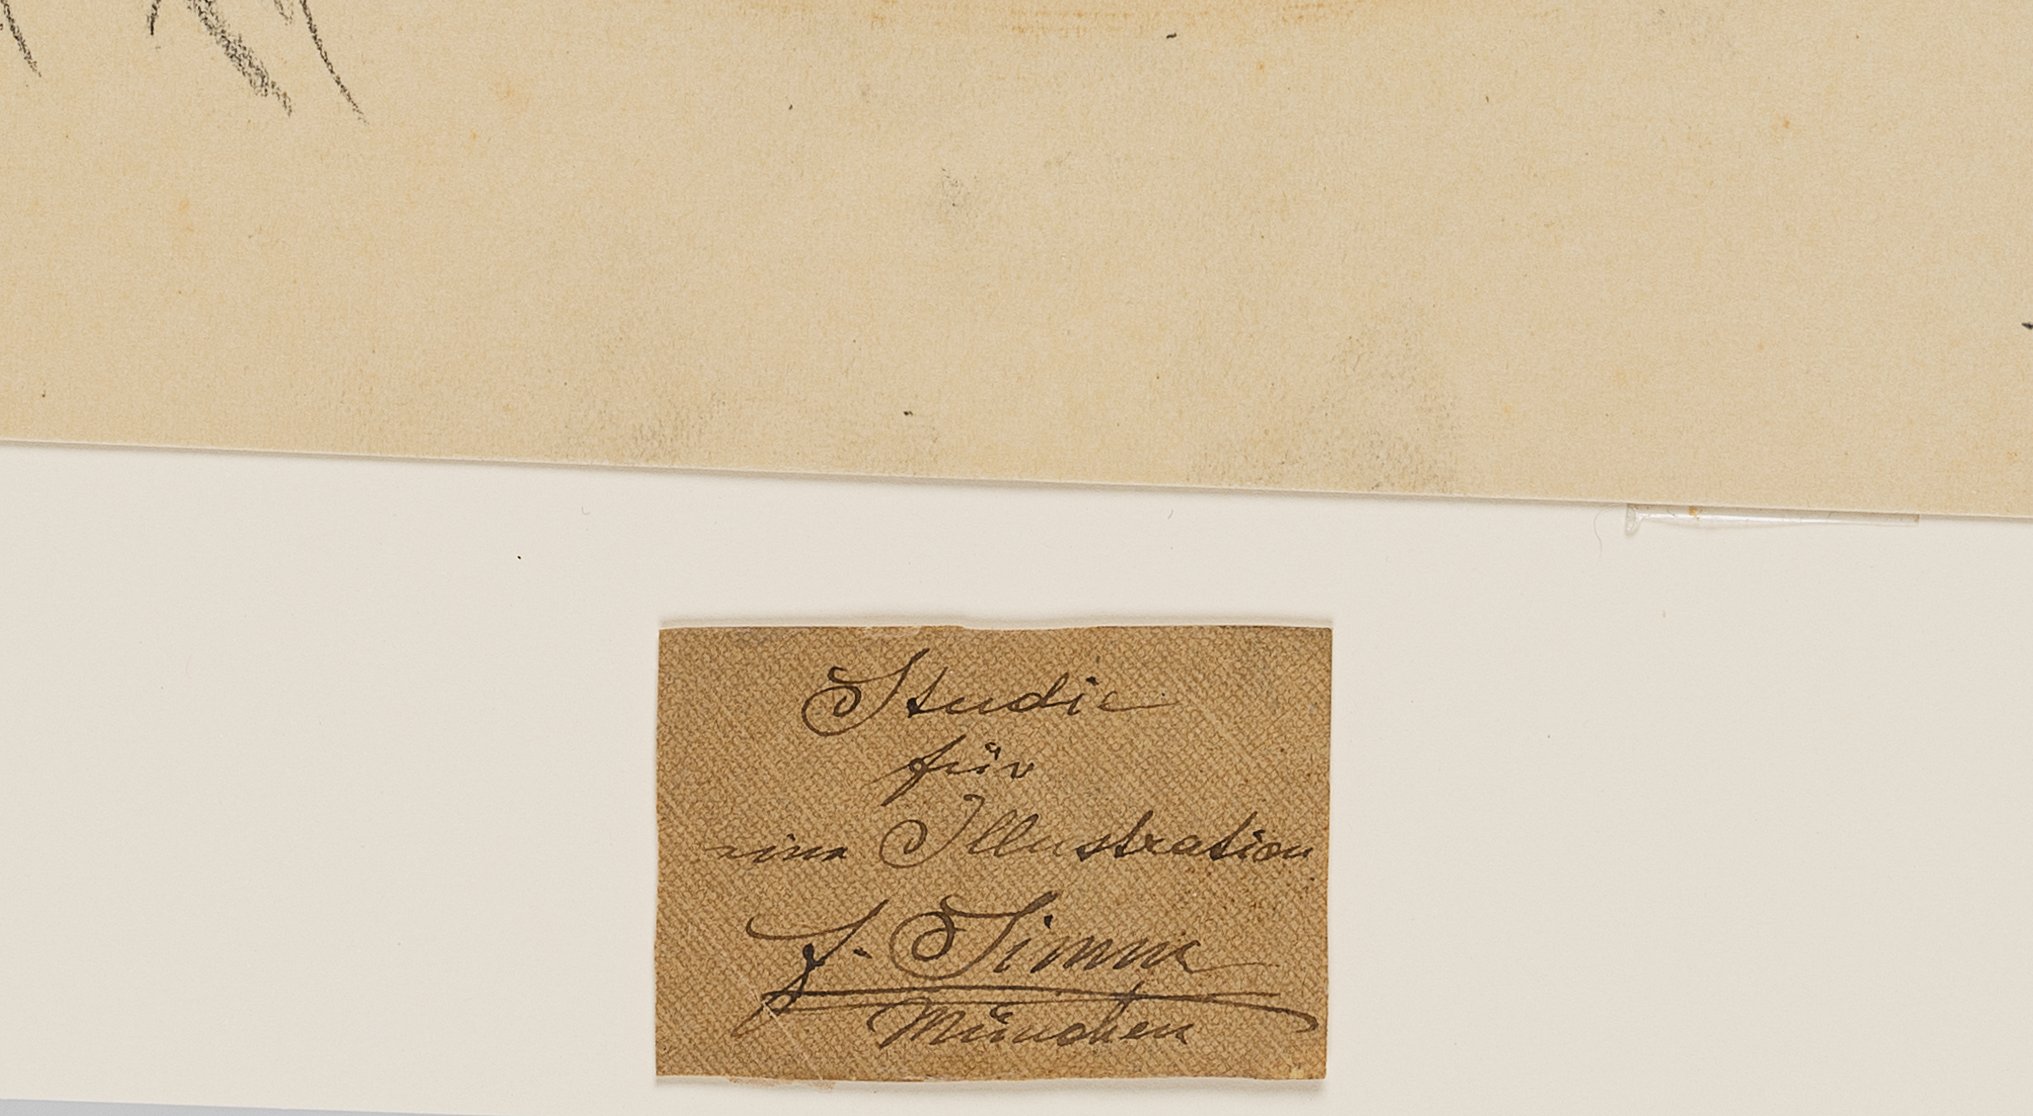 Studie
für
eine Illustration
F. Simm
München